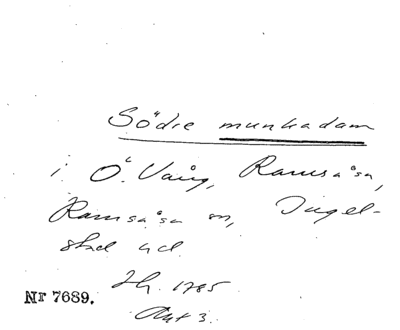 Södre munkadam
i Ö. Vång, Ramsåsa,
Ramsåsa sn, Ingel-
stad hd.
Jb. 1785
Akt 3.
Nr 7689.